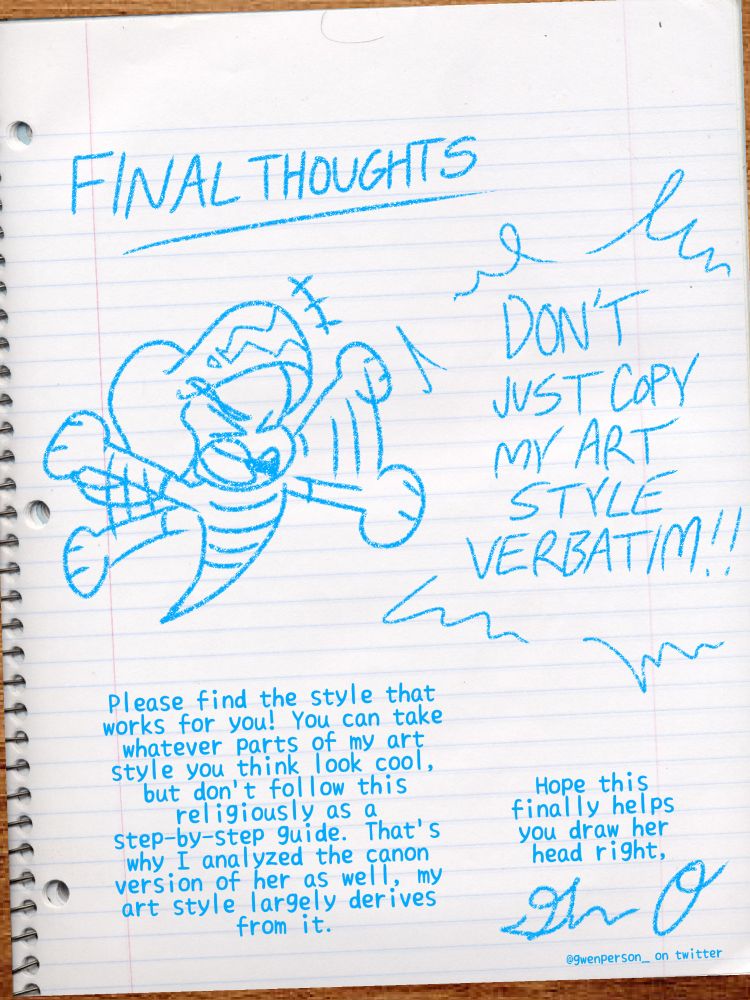 FINAL THOUGHTS
DON'T
JUST COPY
MY ART
STYLE
VERBATIM!!
Please find the style that
works for you! You can take
whatever parts of my art
style you think look cool,
but don't follow this
religiously as a
step-by-step guide. That's
why I analyzed the canon
version of her as well, my
art style largely derives
from it.
Hope this
finally helps
you draw her
head right,
@gwenperson_ on twitter